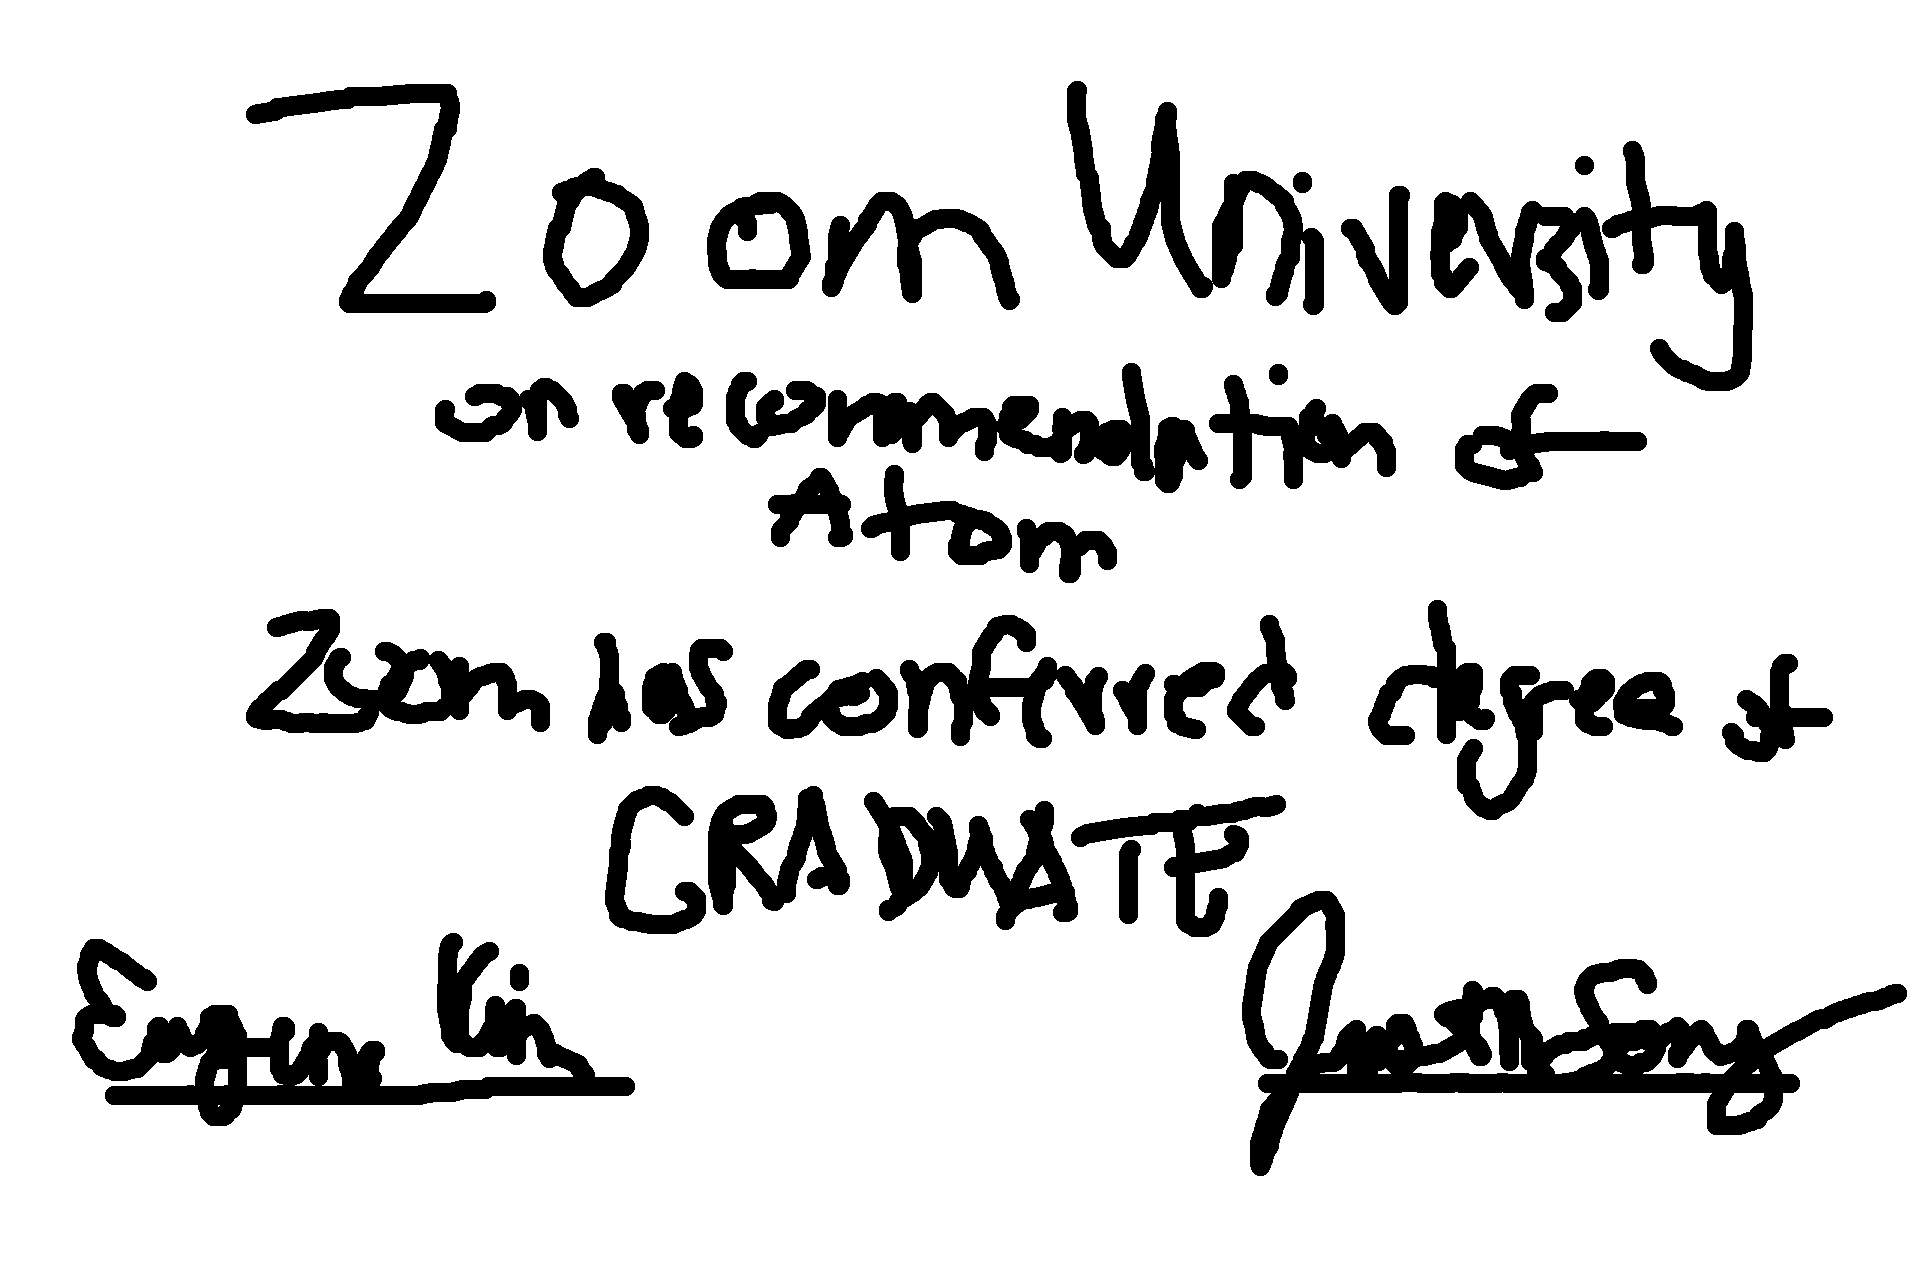 Zoom University
on recommendation of
Atom
Zoom has conferred degree of
GRADUATE
Eugene Kim Justin Song